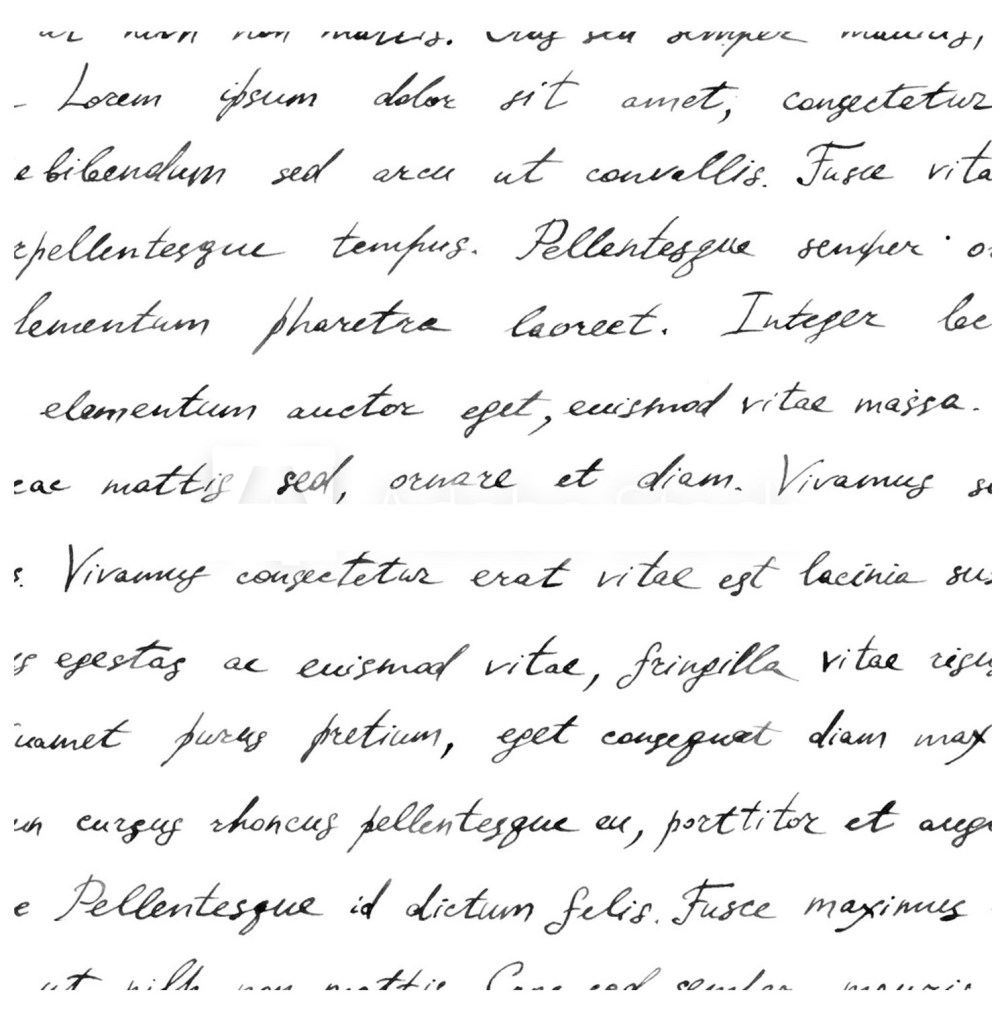 mattis. Cras sed semper mauris,
Lorem ipsum dolor sit amet, consectetur
e bibendum sed arcu ut convallis. Fusce vita
rpellentesque tempus. Pellentesque semper o
lementum pharetra laoreet. Integer lec
elementum auctor eget, euismod vitae massa.
ac mattis sed, ornare et diam. Vivamus s
s. Vivamus consectetur erat vitae est lacinia sus
us egestas ac euismod vitae, fringilla vitae risus
uamet purus pretium, eget consequat diam max
un cursus rhoncus pellentesque eu, porttitor et augu
e Pellentesque id dictum felis. Fusce maximus
ut nibh non mattis Cras sed semper mauris